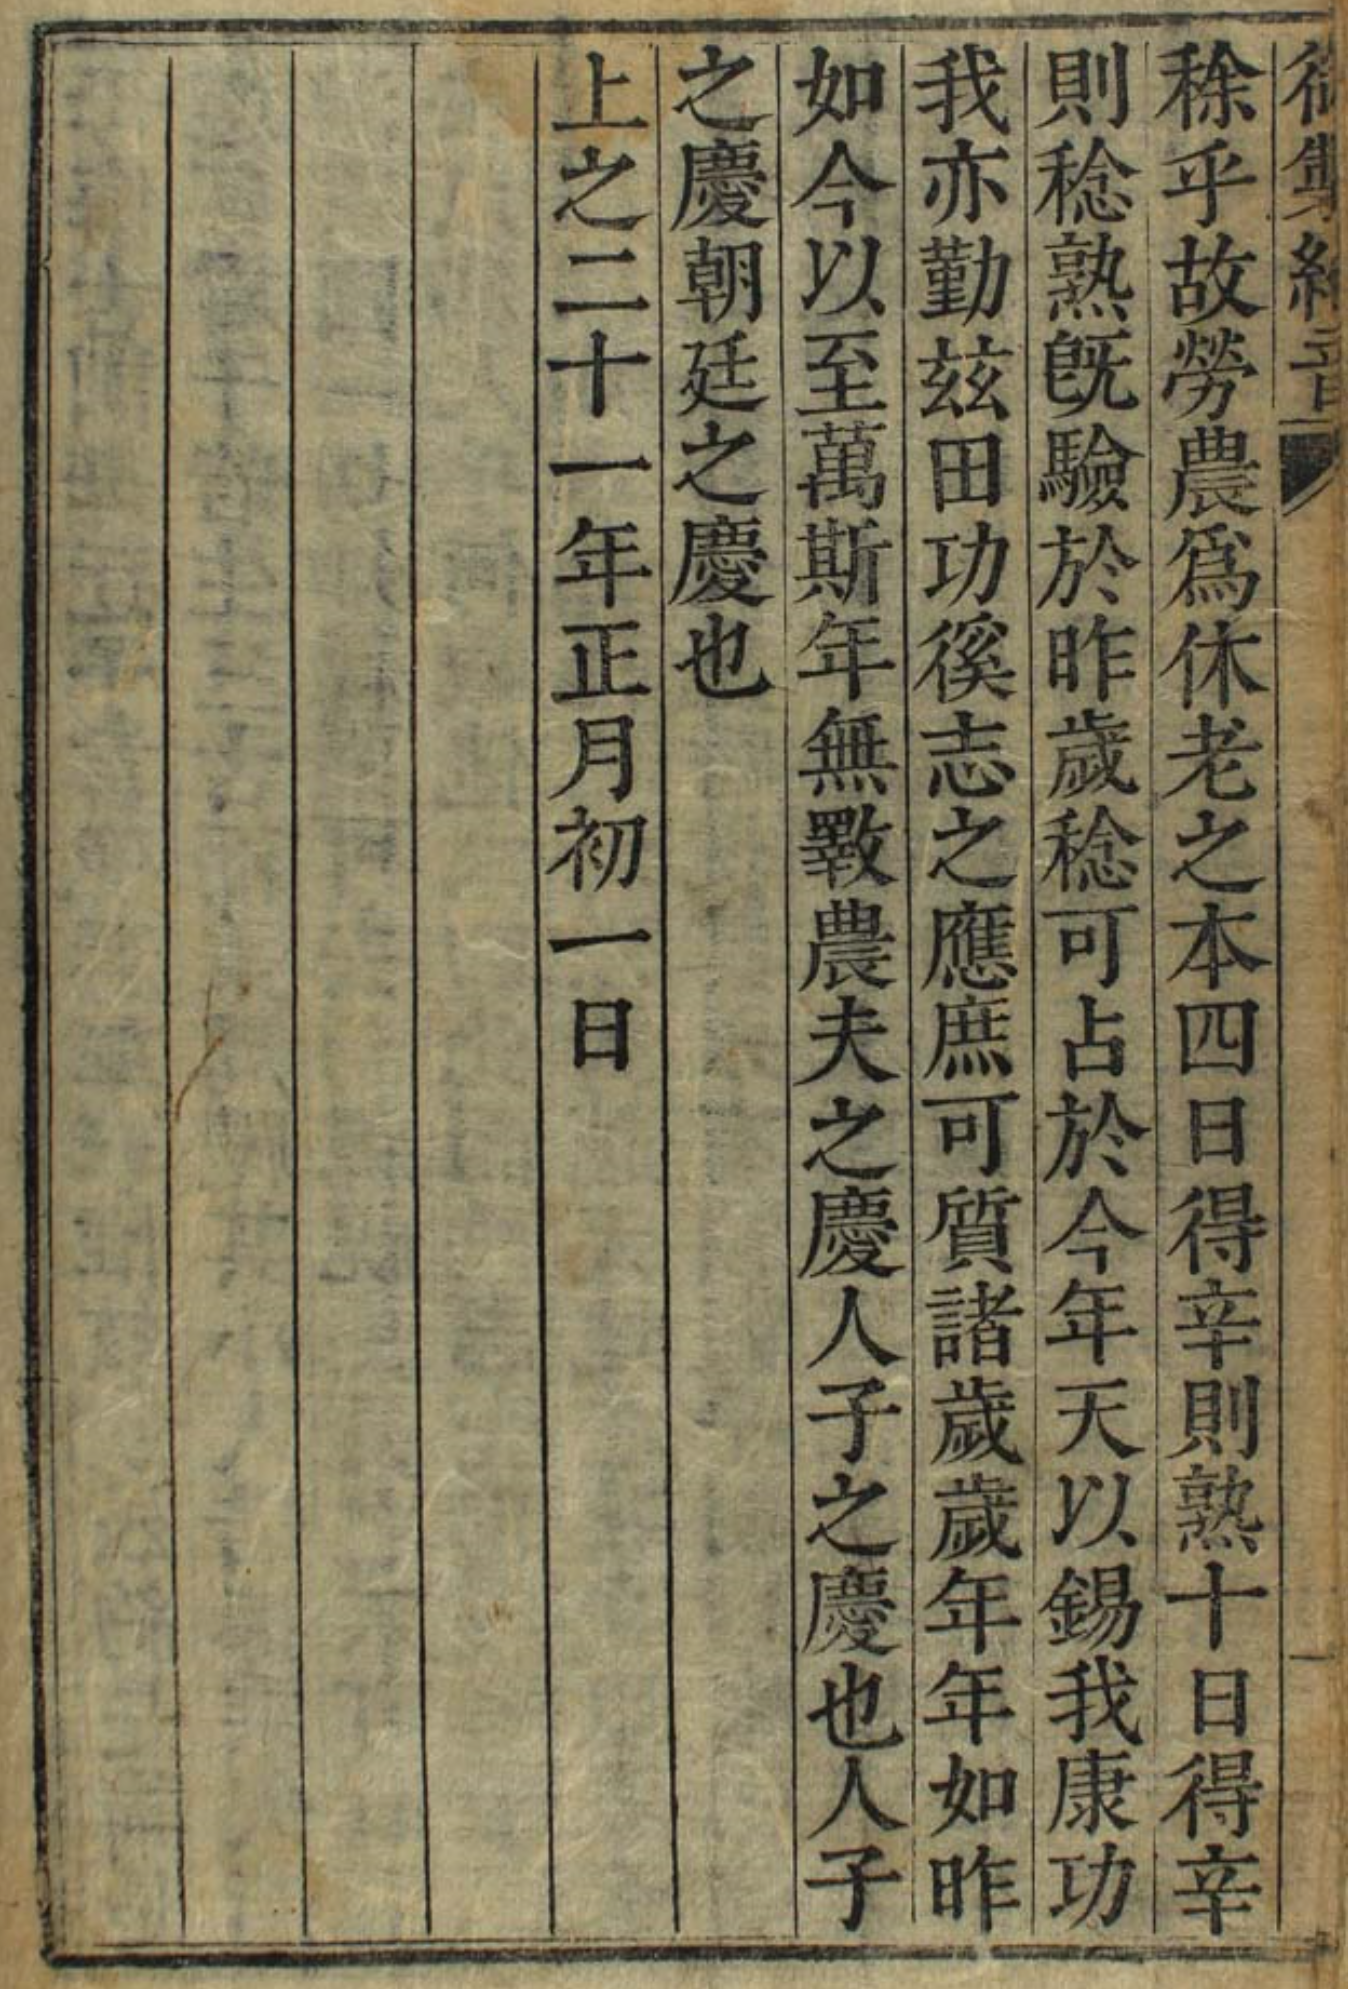 御製綸音
稌乎故勞農爲休老之本四日得辛則熟十日得辛
則稔熟旣驗於昨歲稔可占於今年天以錫我康功
我亦勤玆田功徯志之應庶可質諸歲歲年年如昨
如今以至萬斯年無斁農夫之慶人子之慶也人子
之慶朝廷之慶也
上之二十一年正月初一日
一